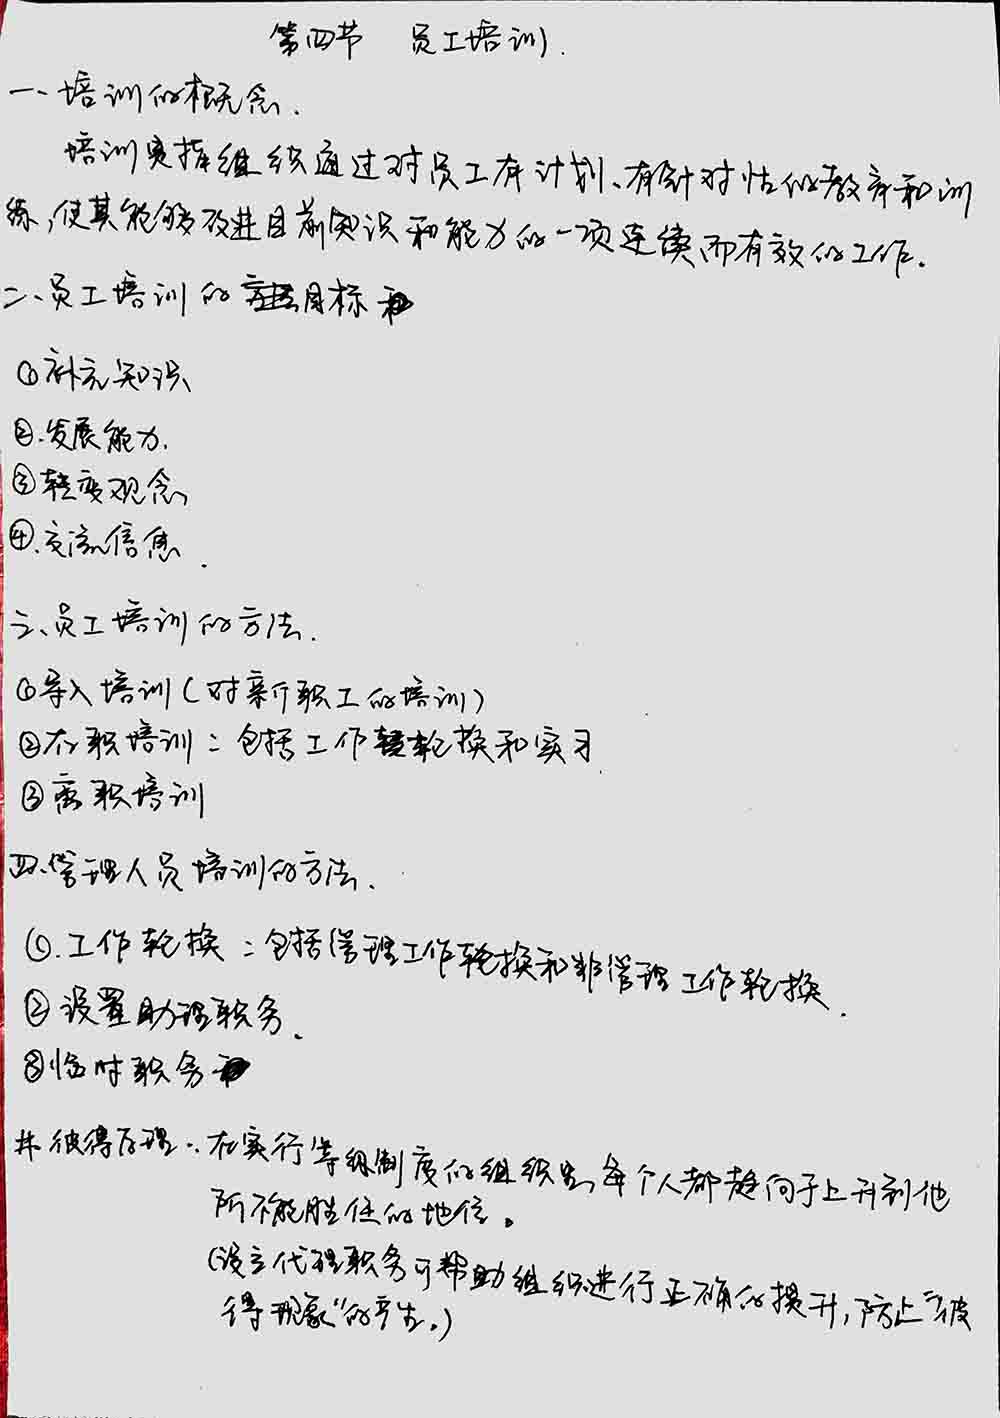 第四节 员工培训.
一、培训的概念.
培训是指组织通过对员工有计划、有针对性的教育和训
练,使其能够改进目前知识和能力的一项连续而有效的工作.
二、员工培训的目标
①补充知识
②.发展能力.
③转变观念
④.交流信息.
三、员工培训的方法.
①导入培训(对新职工的培训)
②在职培训:包括工作轮换和实习
③离职培训
四.管理人员培训的方法.
①.工作轮换:包括管理工作轮换和非管理工作轮换.
②设置助理职务.
③临时职务
#彼得原理:在实行等级制度的组织里,每个人都趋向于上升到他
所不能胜任的地位。
(设立代理职务可帮助组织进行正确的提升,防止“彼
得现象”的产生。)